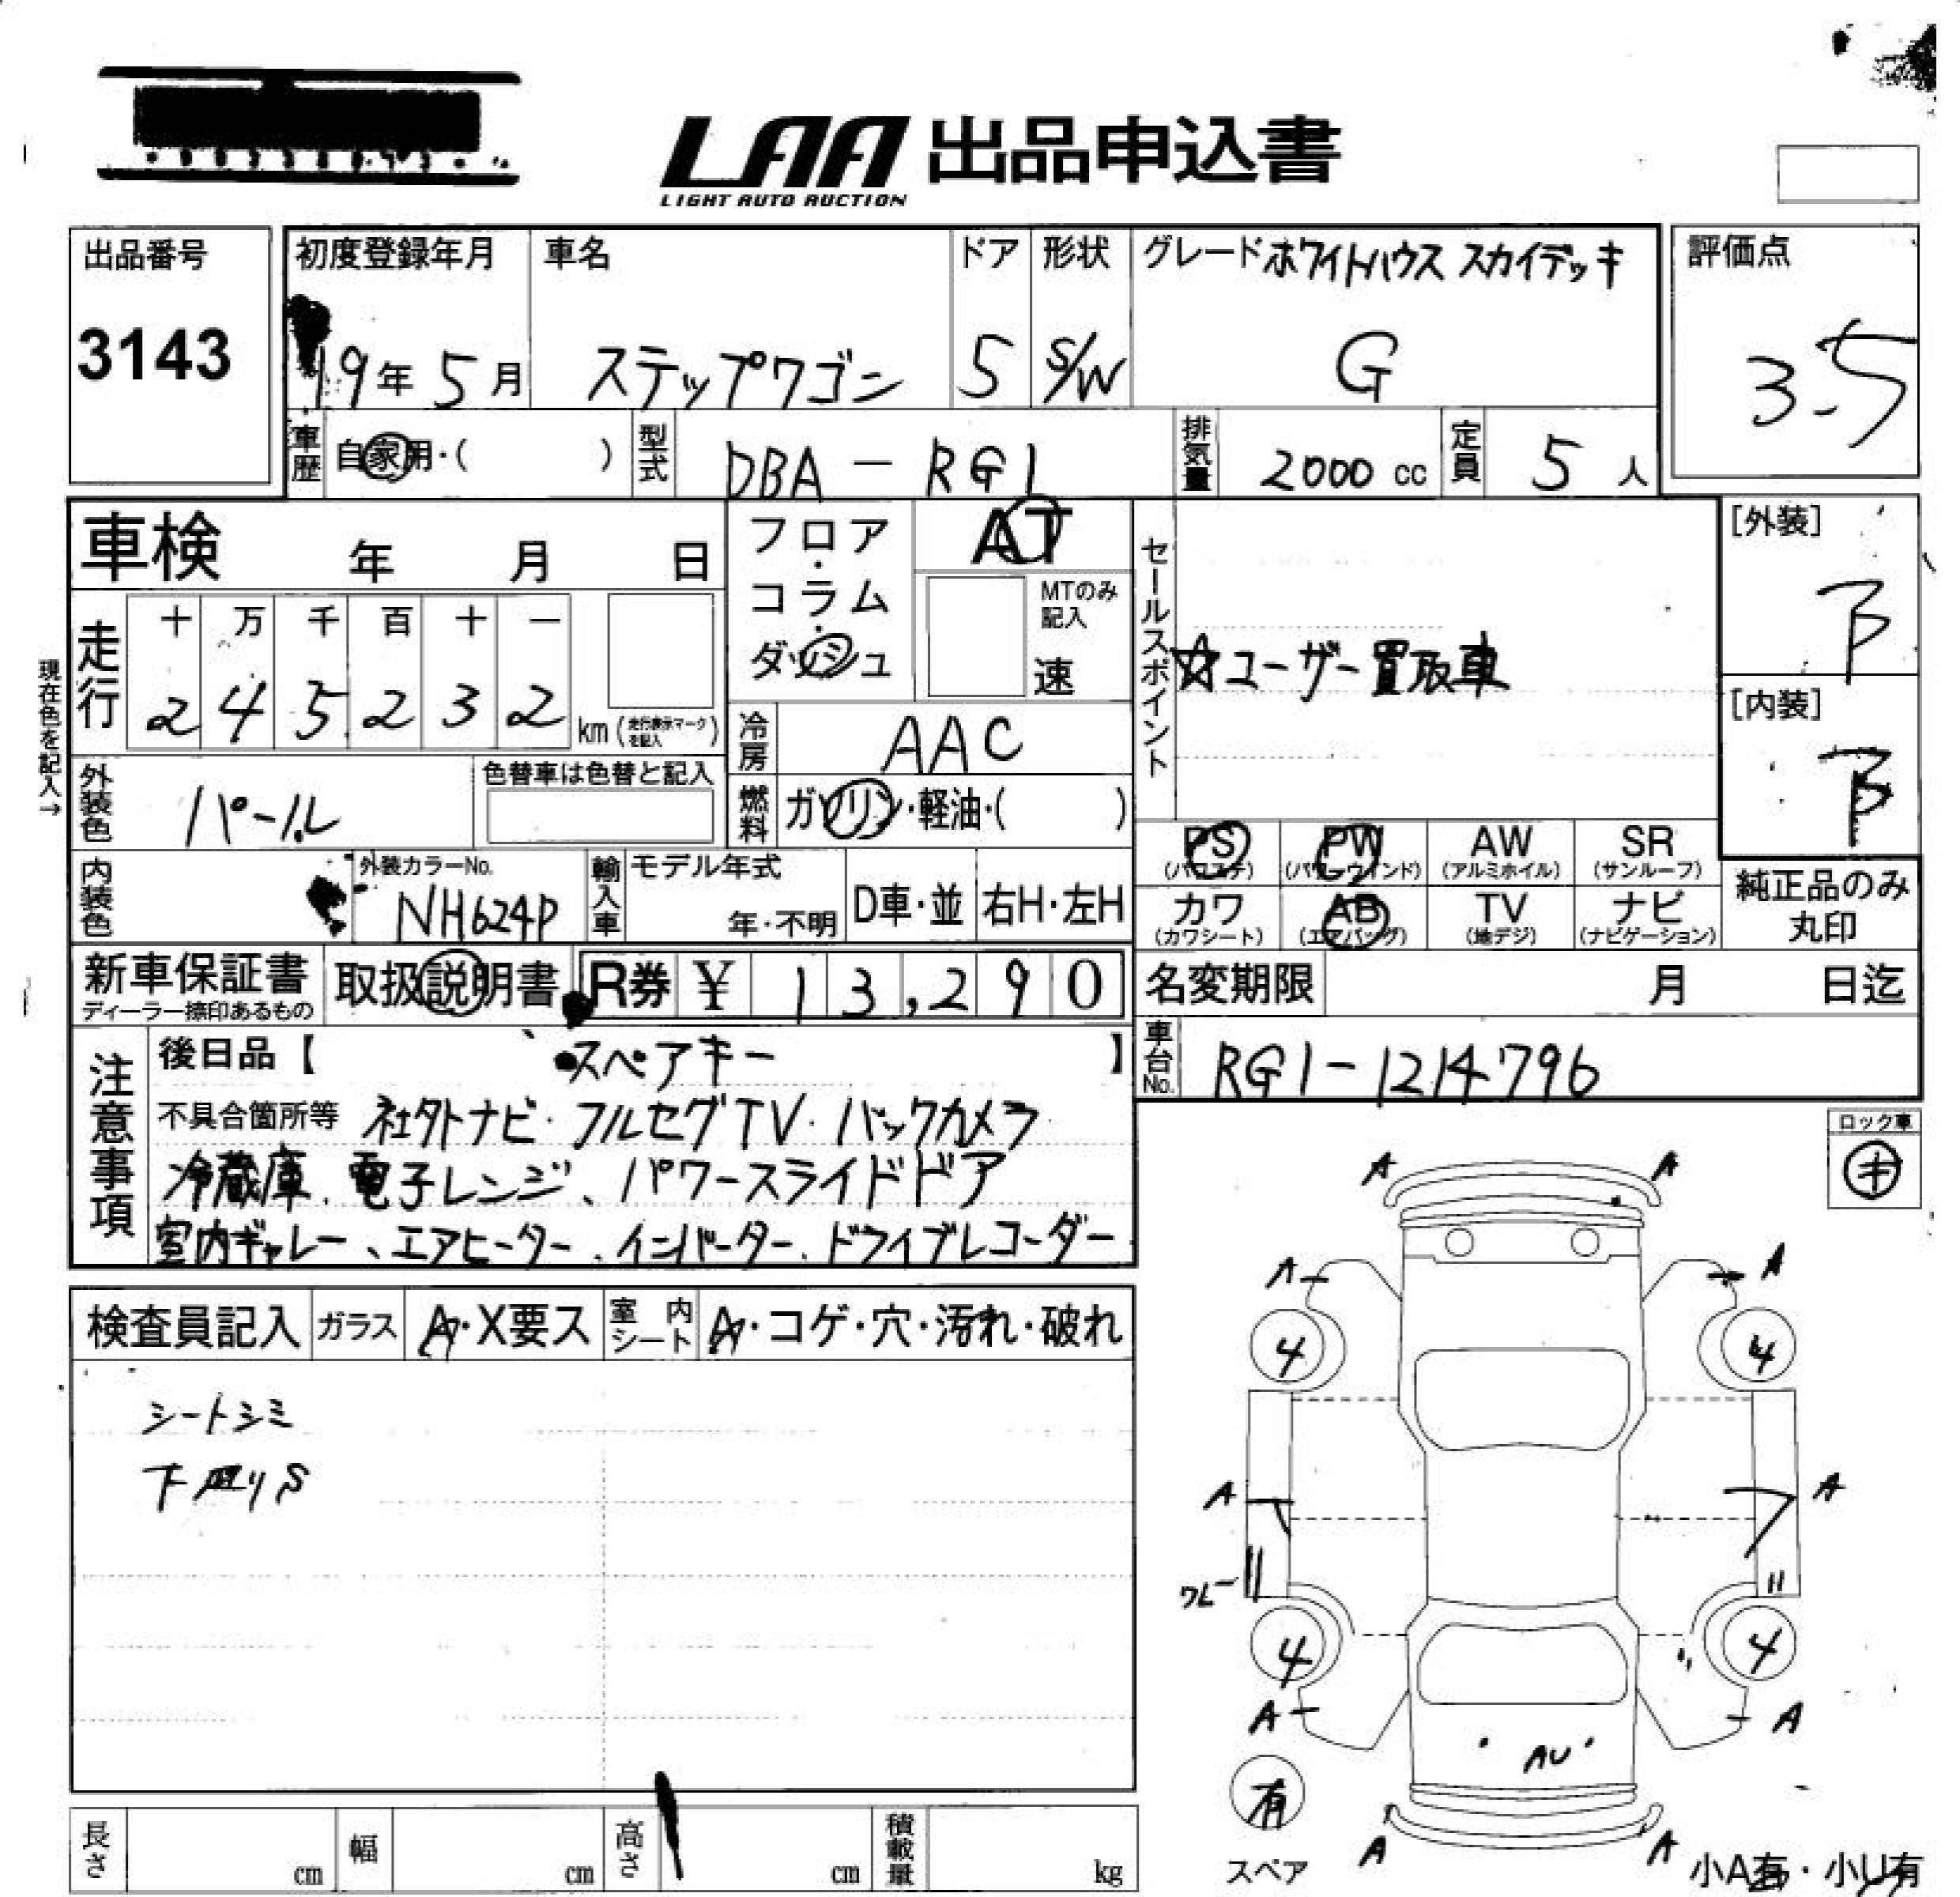 LAA 出品申込書
LIGHT AUTO AUCTION
出品番号
3143
初度登録年月
19年5月
車名
ステップワゴン
ドア
5
形状
S/W
グレード ホワイトハウス スカイデッキ
G
評価点
3.5
車歴
自家用・( )
型式
DBA－RG1
排気量
2000 cc
定員
5 人
車検 年 月 日
フロア・コラム・ダッシュ
AT
MTのみ記入
速
セールスポイント
☆ユーザー買取車
[外装]
B
[内装]
B
現在色を記入→
走行
十 万 千 百 十 一
2 4 5 2 3 2 km (走行表示マークを記入)
冷房
AAC
外装色
パール
色替車は色替と記入
燃料
ガソリン・軽油・( )
PS (パワステ)
PW (パワーウィンド)
AW (アルミホイル)
SR (サンルーフ)
カワ (カワシート)
AB (エアバッグ)
TV (地デジ)
ナビ (ナビゲーション)
純正品のみ丸印
内装色
外装カラーNo.
NH624P
輸入車
モデル年式
年・不明
D車・並
右H・左H
新車保証書
ディーラー捺印あるもの
取扱説明書
R券 ¥ 13,290
名変期限 月 日迄
車台No.
RG1-1214796
注意事項
後日品【 スペアキー 】
不具合箇所等 社外ナビ・フルセグTV・バックカメラ
冷蔵庫、電子レンジ、パワースライドドア
室内ギャレー、エアヒーター、インバーター、ドライブレコーダー
ロック車
キ
検査員記入
ガラス
A・X要ス
室内シート
A・コゲ・穴・汚れ・破れ
シートシミ
下廻りS
A A
A A
4 4
A A
ワレ
4 4
A A
AU
有
スペア
A A
小A有・小U有
長さ cm
幅 cm
高さ cm
積載量 kg